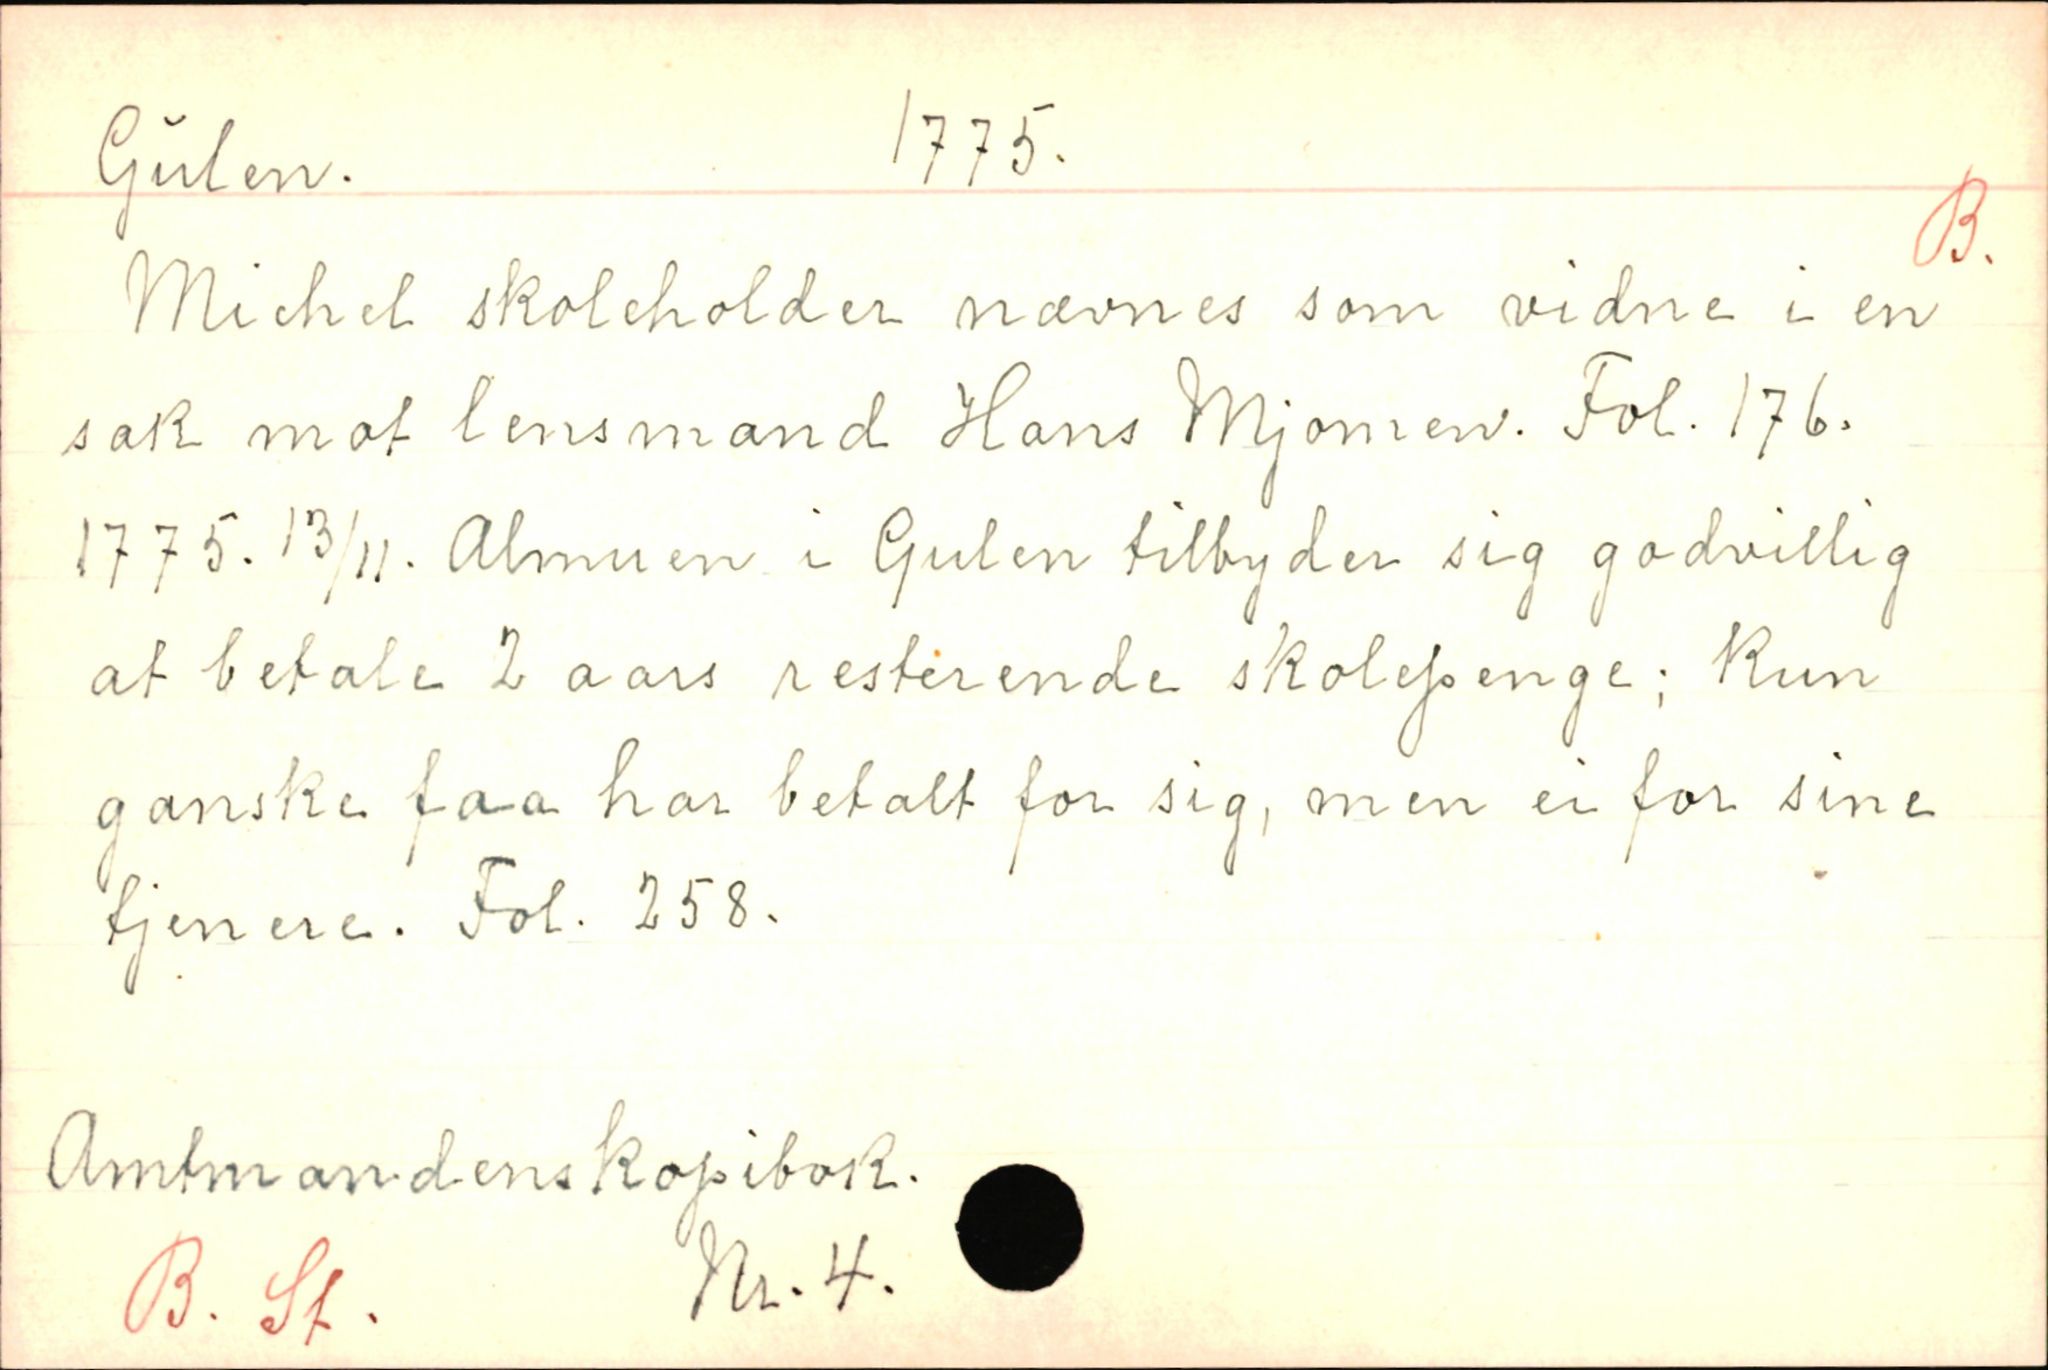 Gŭlen. 1775.
B.
Michel skoleholder nævnes som vidne i en
sak mot lensmand Hans Mjømen. Fol. 176.
1775. 13/11. Almuen i Gulen tilbyder sig godvillig
at betale 2 aars resterende skolepenge; kun
ganske faa har betalt for sig, men ei for sine
tjenere. Fol. 258.
Amtmandens kopibok.
B. St. Nr. 4.